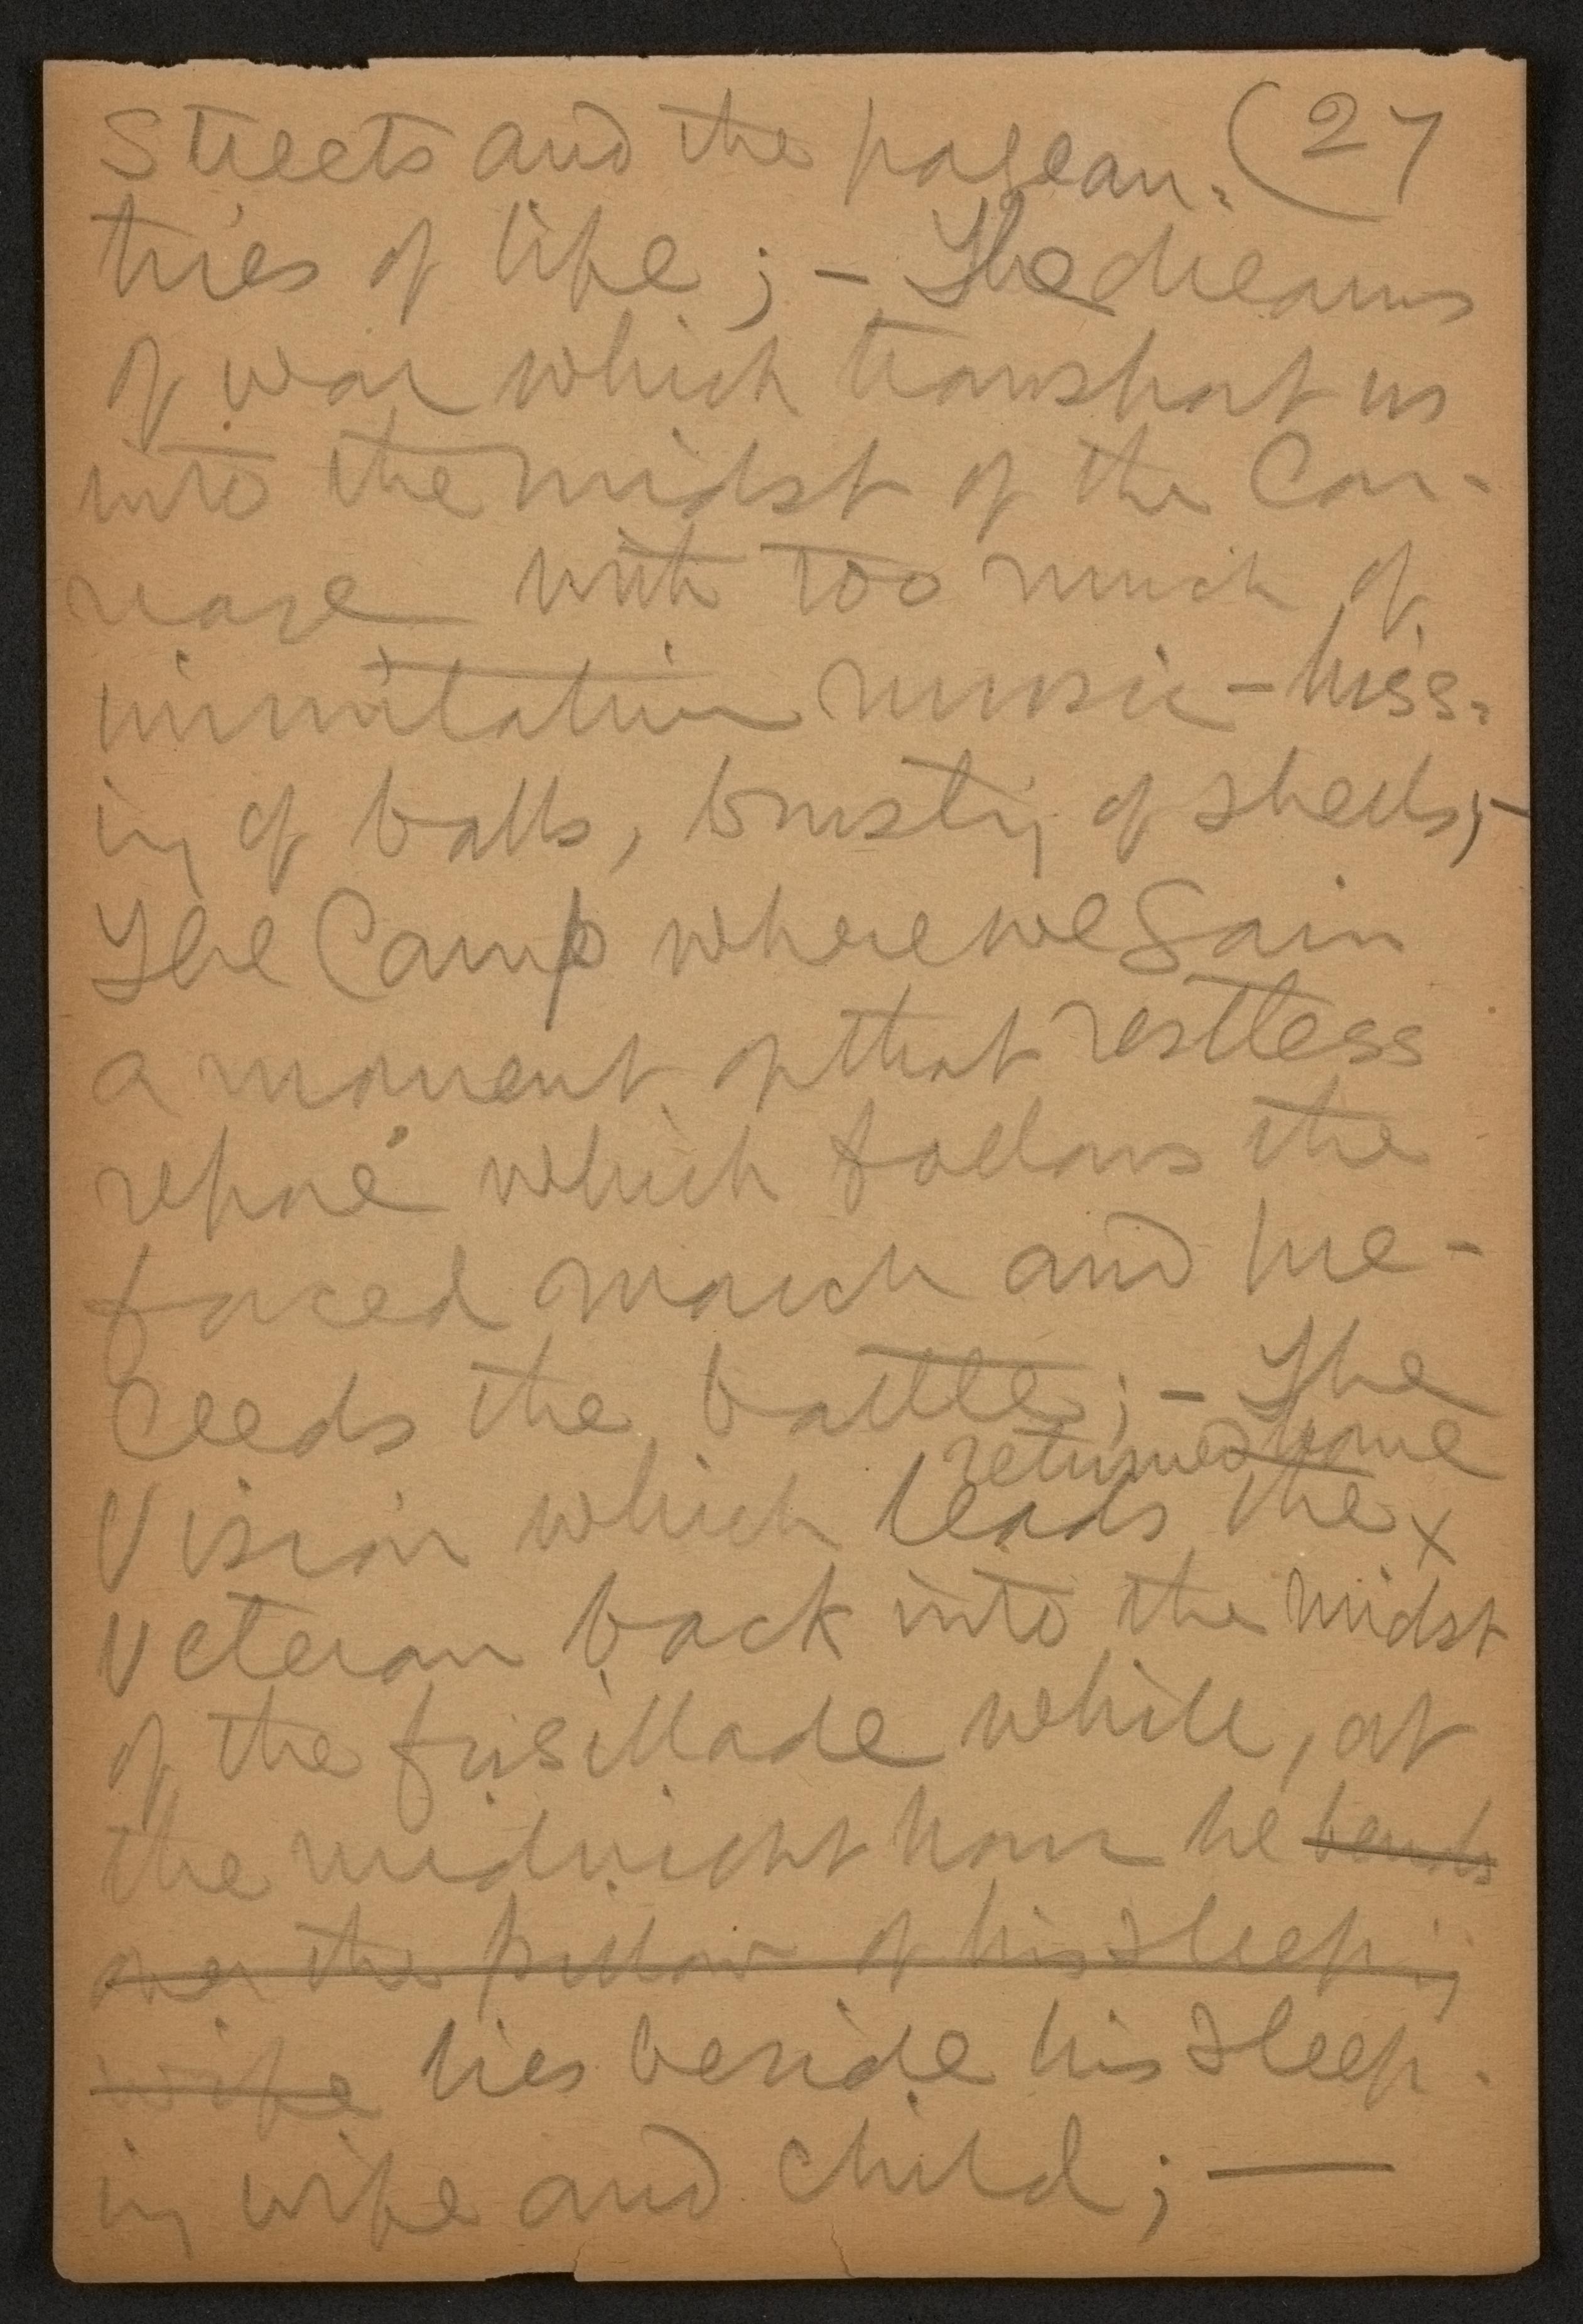 Streets and the pagean- (27
tries of life; – The dreams
of war which transport us
into the midst of the Car-
nage with too much of
immitative music – hiss-
ing of balls, bursting of shells; –
The Camp where we gain
a moment of that restless
repose which follows the
forced march and pre-
ceeds the battle; – The
returned home
Vision which leads the x
Veteran back into the midst
of the fusillade while, at
the midnight hour he bends
over the pillow of his sleeping
wife lies beside his sleep-
ing wife and child; —